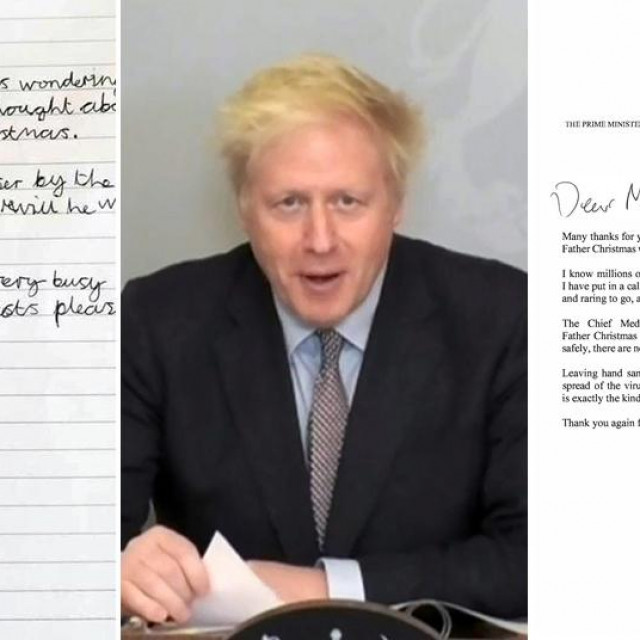 s wondering
hought abo
stmas.
er by the
will he w
very busy
sts please
THE PRIME MINISTE
Dear M
Many thanks for y
Father Christmas
I know millions o
I have put in a cal
and raring to go, a
The Chief Med
Father Christmas
safely, there are n
Leaving hand san
spread of the viru
is exactly the kind
Thank you again f